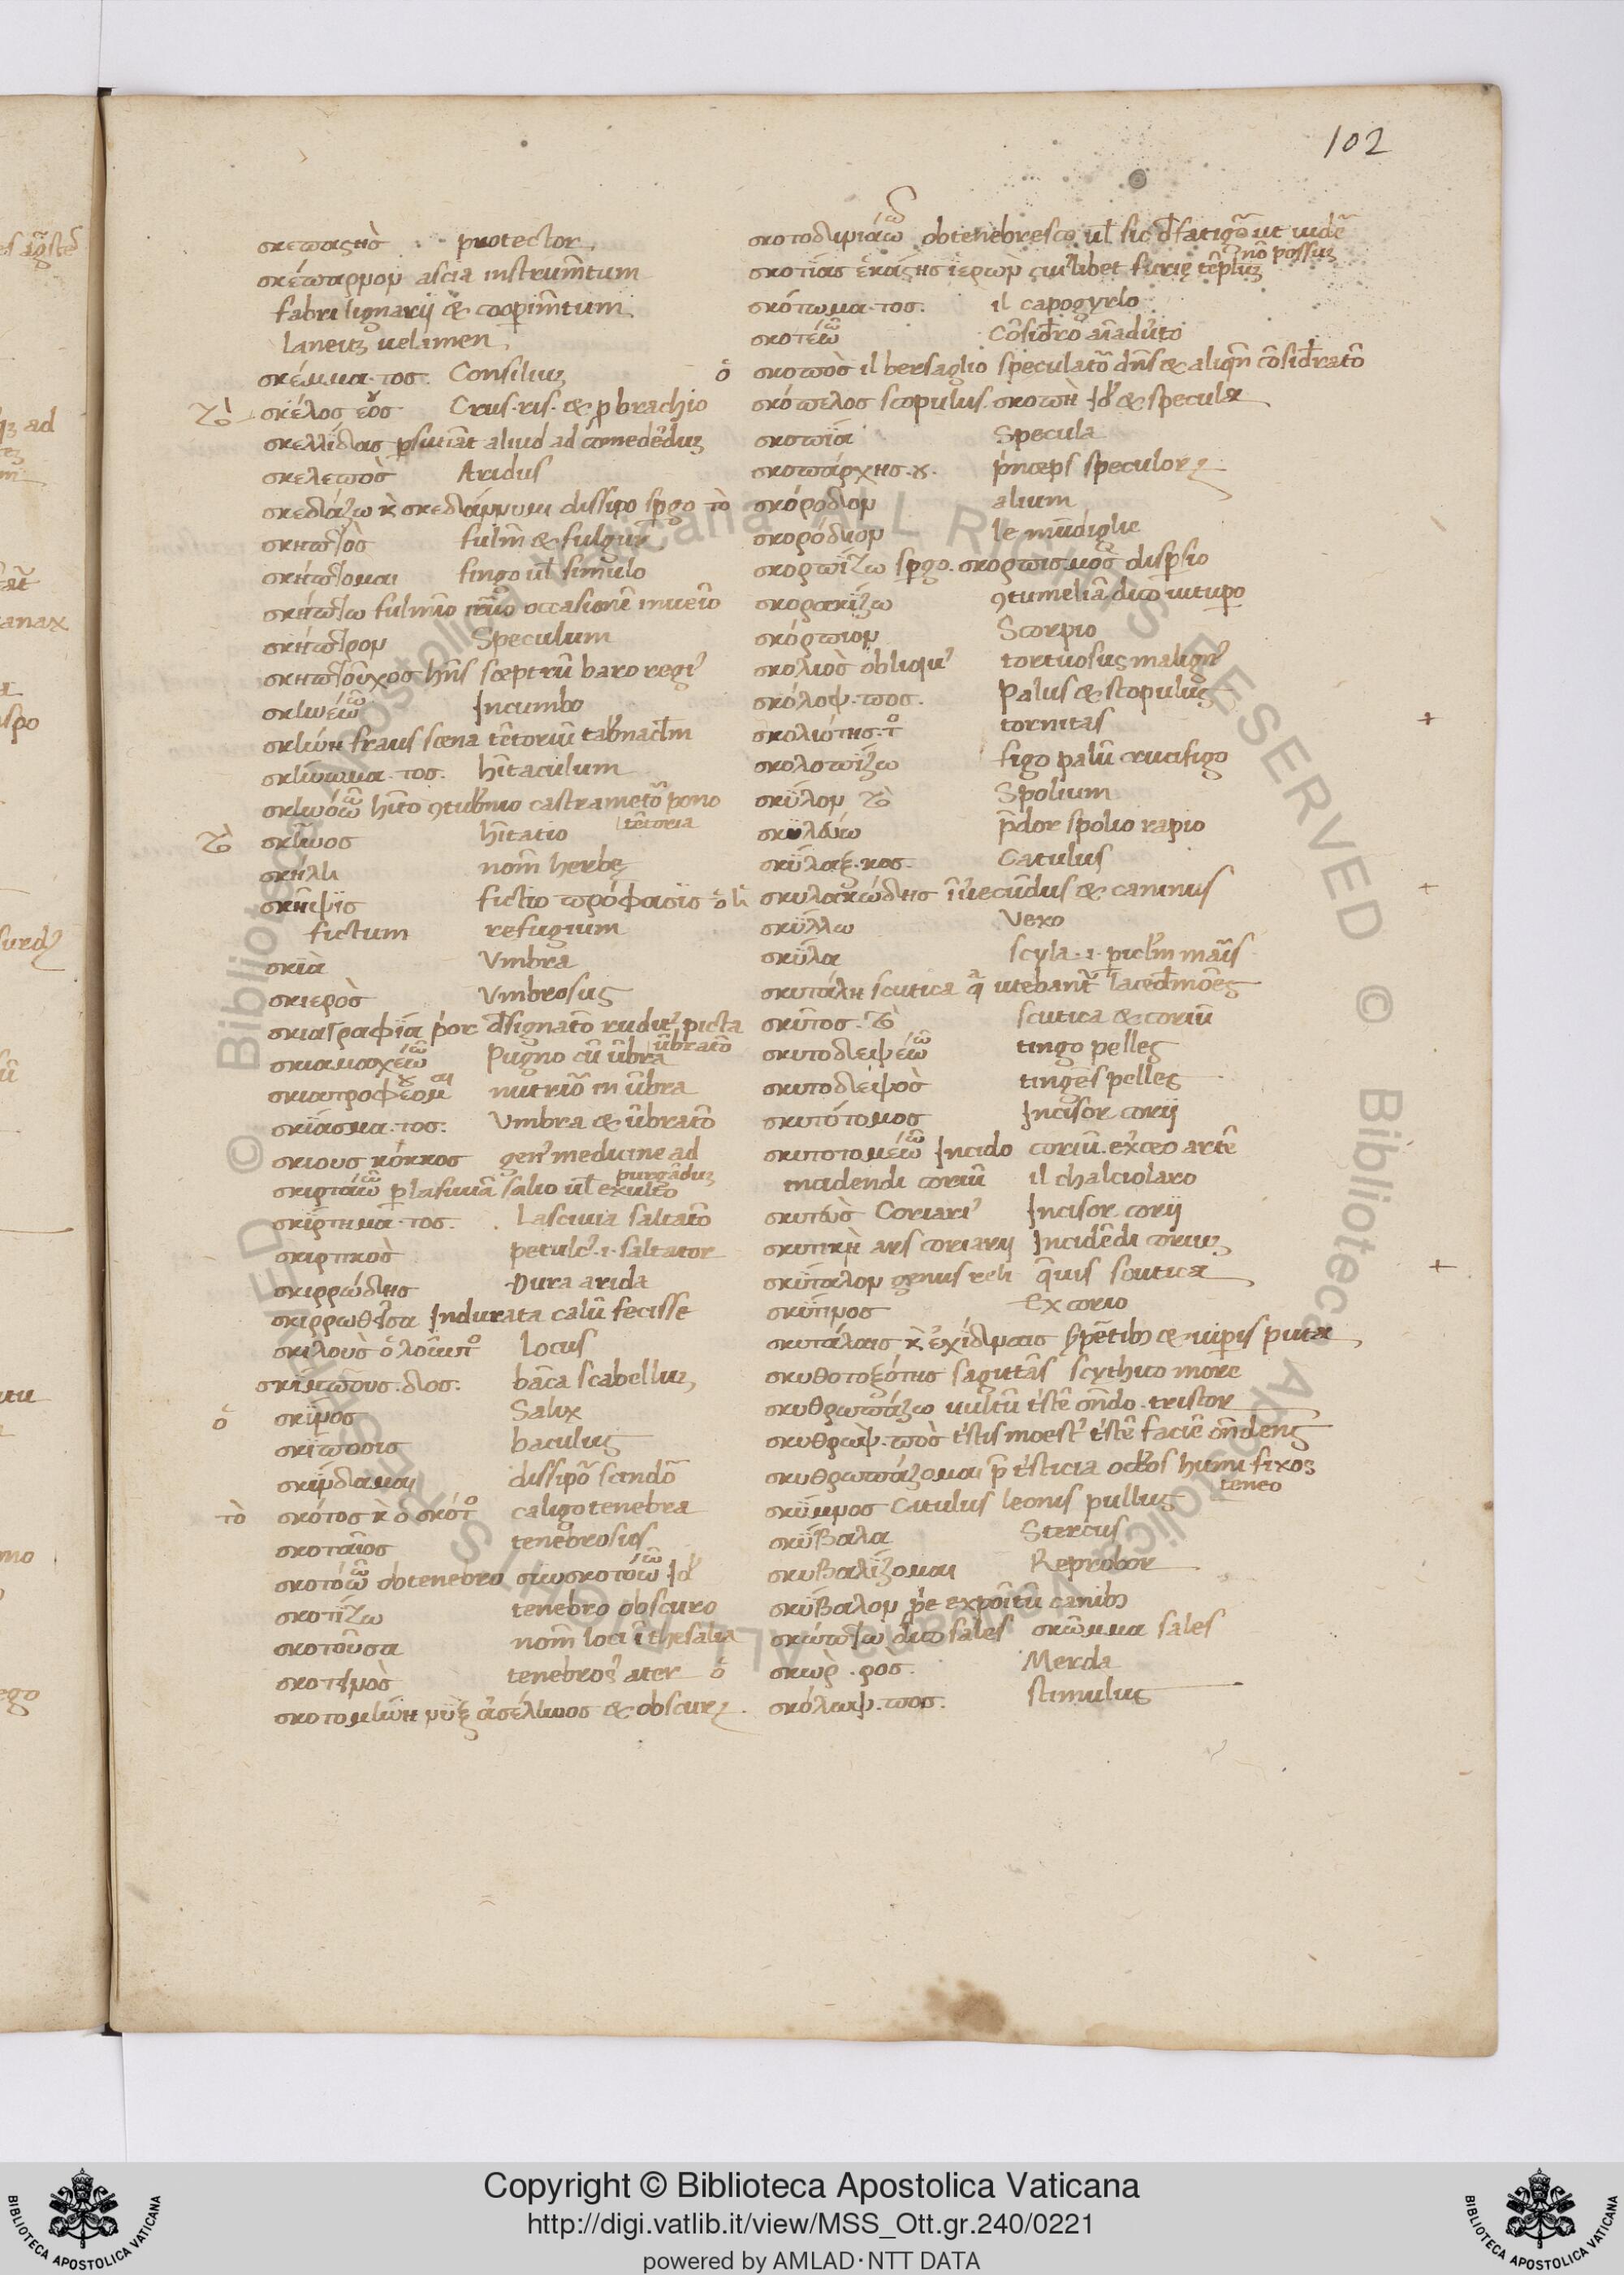 102
σκεπαστὴς protector
σκέπαρνον ascia instrum̄tum
fabri lignarij & coopim̄tum
laneuȝ uelamen
σκέμμα·τος. Consiliuȝ
τὸ σκέλος εος· Crus·ris· & ꝓ brachio
σκελλίδας
σκελετὸς Aridus
σκεδάζω κ̀ σκεδάννυμι dissipo spgo
σκηπτὸς fulm̄ & fulgur
σκήπτομαι fingo ul̄ simulo
σκήπτω fulmīo occasionē inueīo
σκήπτρον Speculum
σκηπτοῦχος hn̄s sceptrū baro regiꝰ
σκηνέω Incumbo
σκηνὴ fraus scena tētoriū tabnaclm̄
σκήνωμα·τος. hītaculum
σκηνόω hīto ꝯtubnio castrametoꝛ pono
tētoria
τὸ σκῆνος hītatio
σκήλη nom̄ herbę
σκῆψις fictio πρόφασις
fictum refugium
σκιὰ Vmbra
σκιερὸς Vmbrosus
σκιαγραφία designatō rudis picta
ūbratō
σκιαμαχέω Pugno cū ūbra
σκιατροφέομαι nutrioꝛ in ūbra
σκίασμα·τος. Vmbra & ūbratō
σκιους κόκκος genꝰ medicine ad
purgāduȝ
σκιρτάω p lasciuiā salio ul̄ exulto
σκίρτημα·τος. Lasciuia saltatō
σκιρτικὸς petulcꝰ·i·saltator
σκιρρώδης Dura arida
σκιρρωθεῖσα Indurata calū fecisse
σκιλοὺς Locus
σκίμπους·δος. bāca scabelluȝ
ὁ σκῖνος Salix
σκίπωσις baculus
σκίνδαμαι dissipoꝛ scindoꝛ
τὸ σκότος κ̀ ὁ σκότος caligo tenebra
σκοταῖος tenebrosus
σκοτόω obtenebro συσκοτόω Id
σκοτίζω tenebro obscuro
σκοτοῦσα nom̄ loci ī thesalia
σκοτεινὸς tenebrosꝰ ater
σκοτομήνη νὺξ ἀσέληνος & obscura
σκοτοδινιάω obtenebresco ul̄ sic defatigoꝛ ut uidē
nō possuȝ
σκοτίας ἑκάστης ἱερὼν cuiꝰlibet furię tēpluȝ
σκότωμα·τος. il capogyrlo
σκοπέω Cōsidro aīaduto
ὁ σκοπὸς il bersaglio speculatoꝛ dn̄s & aliqn̄ cōsidratō
σκόπελος scopulus. σκοπὴ Id & specula
σκοπιά Specula
σκοπάρχης·ου. pnceps speculorꝝ
τὸ σκόροδον alium
σκορόδιον
σκορπίζω spgo. σκορπισμὸς dispsio
σκορακίζω ꝯtumeliā dico uitupo
σκόρπιον Scorpio
σκολιὸς obliquꝰ tortuosus malignꝰ
σκόλοψ·πος. Palus & scopulus
σκολιότης·τ tornitas
σκολοπίζω figo palū crucifigo
σκῦλον τὸ Spolium
σκυλάω pdor spolio rapio
σκύλαξ·κος. Catulus
σκυλακώδης īuecūdus & caninus
σκύλλω Vexo
σκύλα scyla·i·piclm̄ maris
σκυτάλη scutica q̄ utebant̄ lacedmōes
σκῦτος·τὸ scutica & coriū
σκυτοδεψέω tingo pelles
σκυτοδεψὸς tingēs pelles
σκυτότομος Incisor corij
σκυτοτομέω Incido coriū. exceo artē
incidendi coriū il chalciolaro
σκυτεὺς Coriariꝰ Incisor corij
σκυτικὴ ars coriarij Incidēdi coriuȝ
σκύταλον genus teli q̄uis scutica
σκύτινος Ex corio
σκυτάλαις κ̀ ἐχίδναις spētibꝰ & uipis puta
σκυθοτοξότης sagitās scythico more
σκυθρωπάζω uultū tꝰstē on̄do·tristor
σκυθρωψ·πὸς tꝰstis moestꝰ tꝰstē faciē on̄dens
σκυθρωπάζομαι p tꝰsticia oclos humi fixos
teneo
σκύμνος Catulus leonis pullus
σκύβαλα Stercus
σκυβαλίζομαι Reprobor
σκύβαλον expōitū canibꝰ
σκώπτω dico sales σκῶμμα sales
ὁ σκὼρ·ρος. Merda
σκόλωψ·πος. stimulus
Copyright © Biblioteca Apostolica Vaticana
http://digi.vatlib.it/view/MSS_Ott.gr.240/0221
powered by AMLAD·NTT DATA
BIBLIOTECA APOSTOLICA VATICANA
BIBLIOTECA APOSTOLICA VATICANA